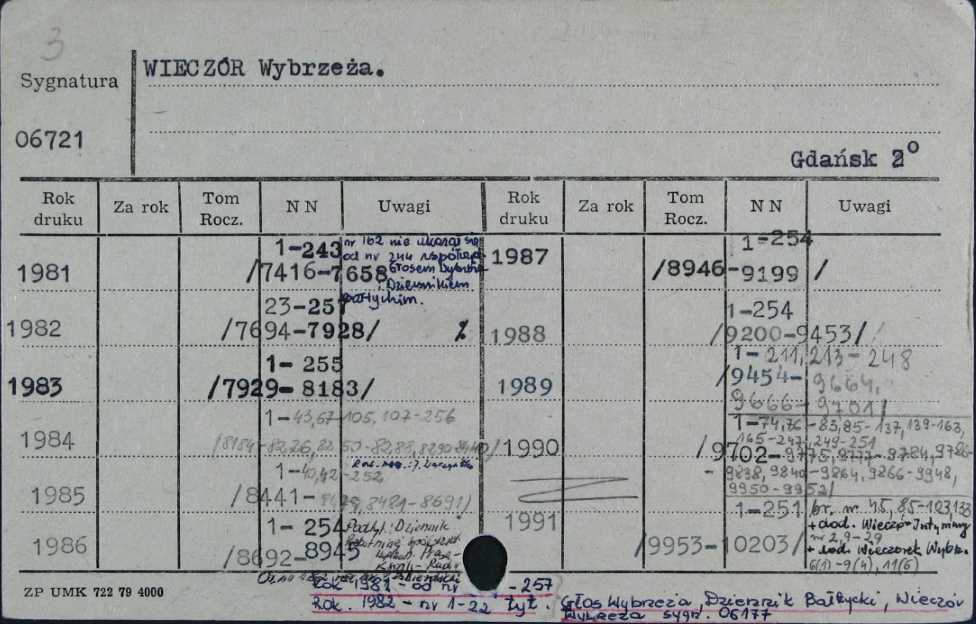 3
Sygnatura
WIECZÓR Wybrzeża.
06721
Gdańsk 2°
Rok druku Za rok Tom Rocz. N N Uwagi Rok druku Za rok Tom Rocz. N N Uwagi
1981 1-243 /7416-7658
nr 162 nie ukazał się
od nr 244 wspólnie z
Głosem Wybrzeża
i Dziennikiem
Bałtyckim.
1982 23-251 /7694-7928/
1983 1-255 /7929-8183/
1984 1-43,67-105,107-256
1985 1-40,42-252 /8441-8479,8481-8691/
1986 1-254 /8692-8945
Podtyt.: Dziennik
1987 1-254 /8946-9199 /
1988 1-254 /9200-9453/
1989 1-211,213-248
/9454-9664,
9666-9701/
1990 1-74,76-83,85-137,139-163,
165-247,249-251
/9702-9775,9777-9784,9786-
9838,9840-9864,9866-9948,
9950-9952/
1991 1-251 /9953-10203/
br. nr 45, 85-103,133
+ dod. Wieczór Intymny
nr 2,9-29
+ dod. Wieczorek Wybrz.
6(1)-9(4), 11(6)
ZP UMK 722 79 4000
Rok 1981 - od nr -257
Rok. 1982 - nr 1-22 tyt. Głos Wybrzeża, Dziennik Bałtycki, Wieczór
Wybrzeża sygn. 06177